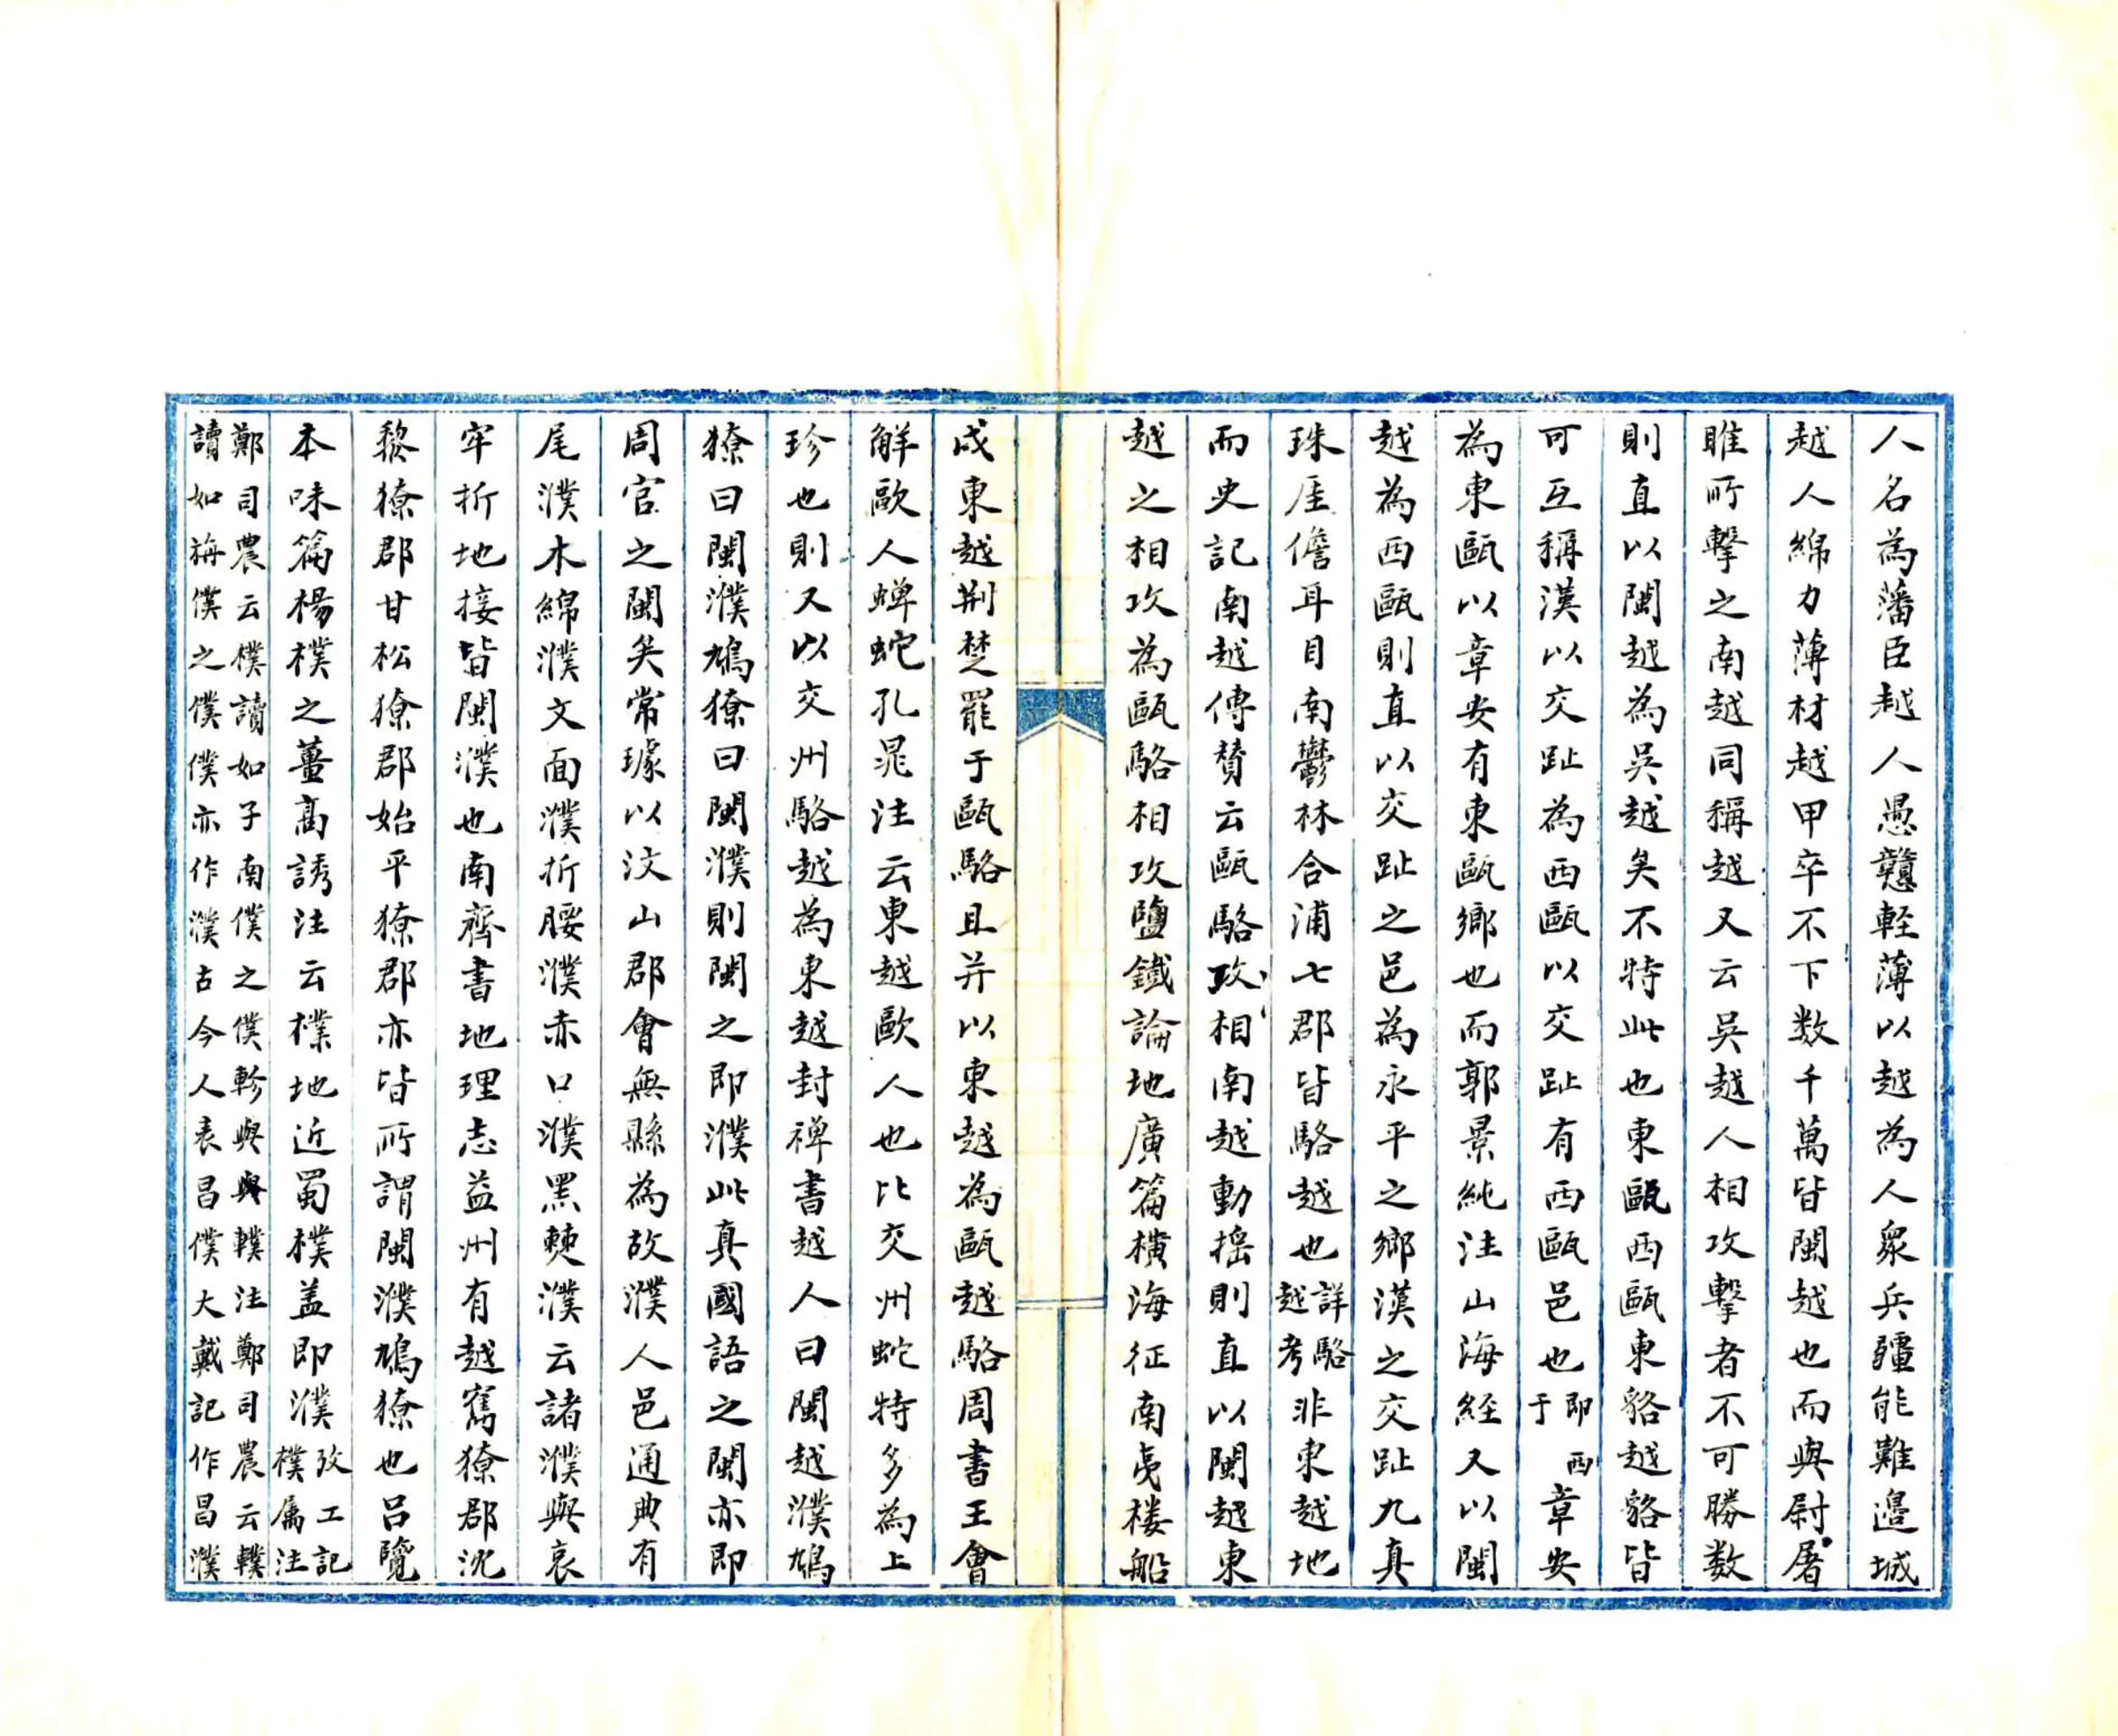 人名為藩臣越人愚戇輕薄以越為人眾兵彊能難邉城
越人綿力薄材越甲卒不下数千萬皆閩越也而與尉屠
睢所擊之南越同稱越又云吳越人相攻擊者不可勝数
則直以閩越為吳越矣不特此也東甌西甌東貉越貉皆
可互稱漢以交趾為西甌以交趾有西甌邑也即西于章安
為東甌以章安有東甌鄉也而郭景純注山海經又以閩
越為西甌則直以交趾之邑為永平之鄉漢之交趾九真
珠厓儋耳日南鬱林合浦七郡皆駱越也詳駱越考非東越地
而史記南越傳賛云甌駱攻相南越動揺則直以閩越東
越之相攻為甌駱相攻鹽鐵論地廣篇橫海征南夷楼船
戍東越荆楚罷于甌駱且并以東越為甌越駱周書王會
觧歐人蟬蛇孔晁注云東越歐人也比交州蛇特多為上
珍也則又以交州駱越為東越封禪書越人曰閩越濮鳩
獠曰閩濮鳩獠曰閩濮則閩之即濮此真國語之閩亦即
周官之閩矣常璩以汶山郡會無縣為故濮人邑通典有
尾濮木綿濮文面濮折腰濮赤口濮黑僰濮云諸濮與哀
牢折地接皆閩濮也南齊書地理志益州有越寯獠郡沈
黎獠郡甘松獠郡始平獠郡亦皆所謂閩濮鳩獠也吕覽
本味篇楊樸之薑高誘注云樸地近蜀樸盖即濮攷工記樸属注
鄭司農云樸讀如子南僕之僕軫與與轐注鄭司農云轐
讀如旃僕之僕僕亦作濮古今人表昌僕大戴記作昌濮